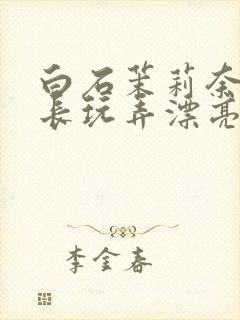 白石茉莉奈
长玩弄漂亮
李金春